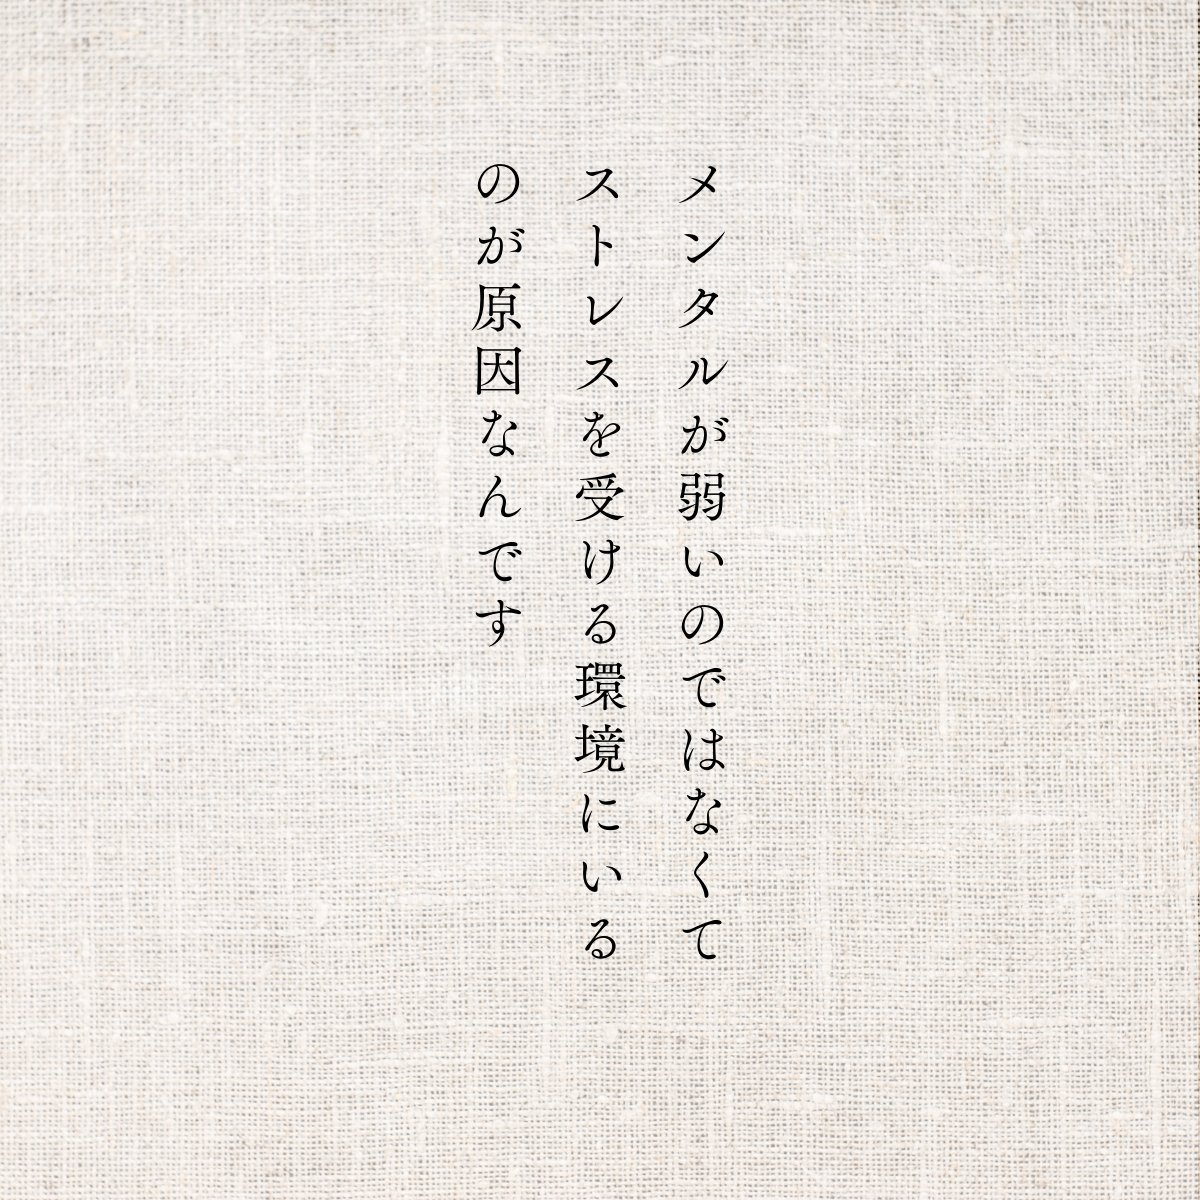 メンタルが弱いのではなくて
ストレスを受ける環境にいる
のが原因なんです